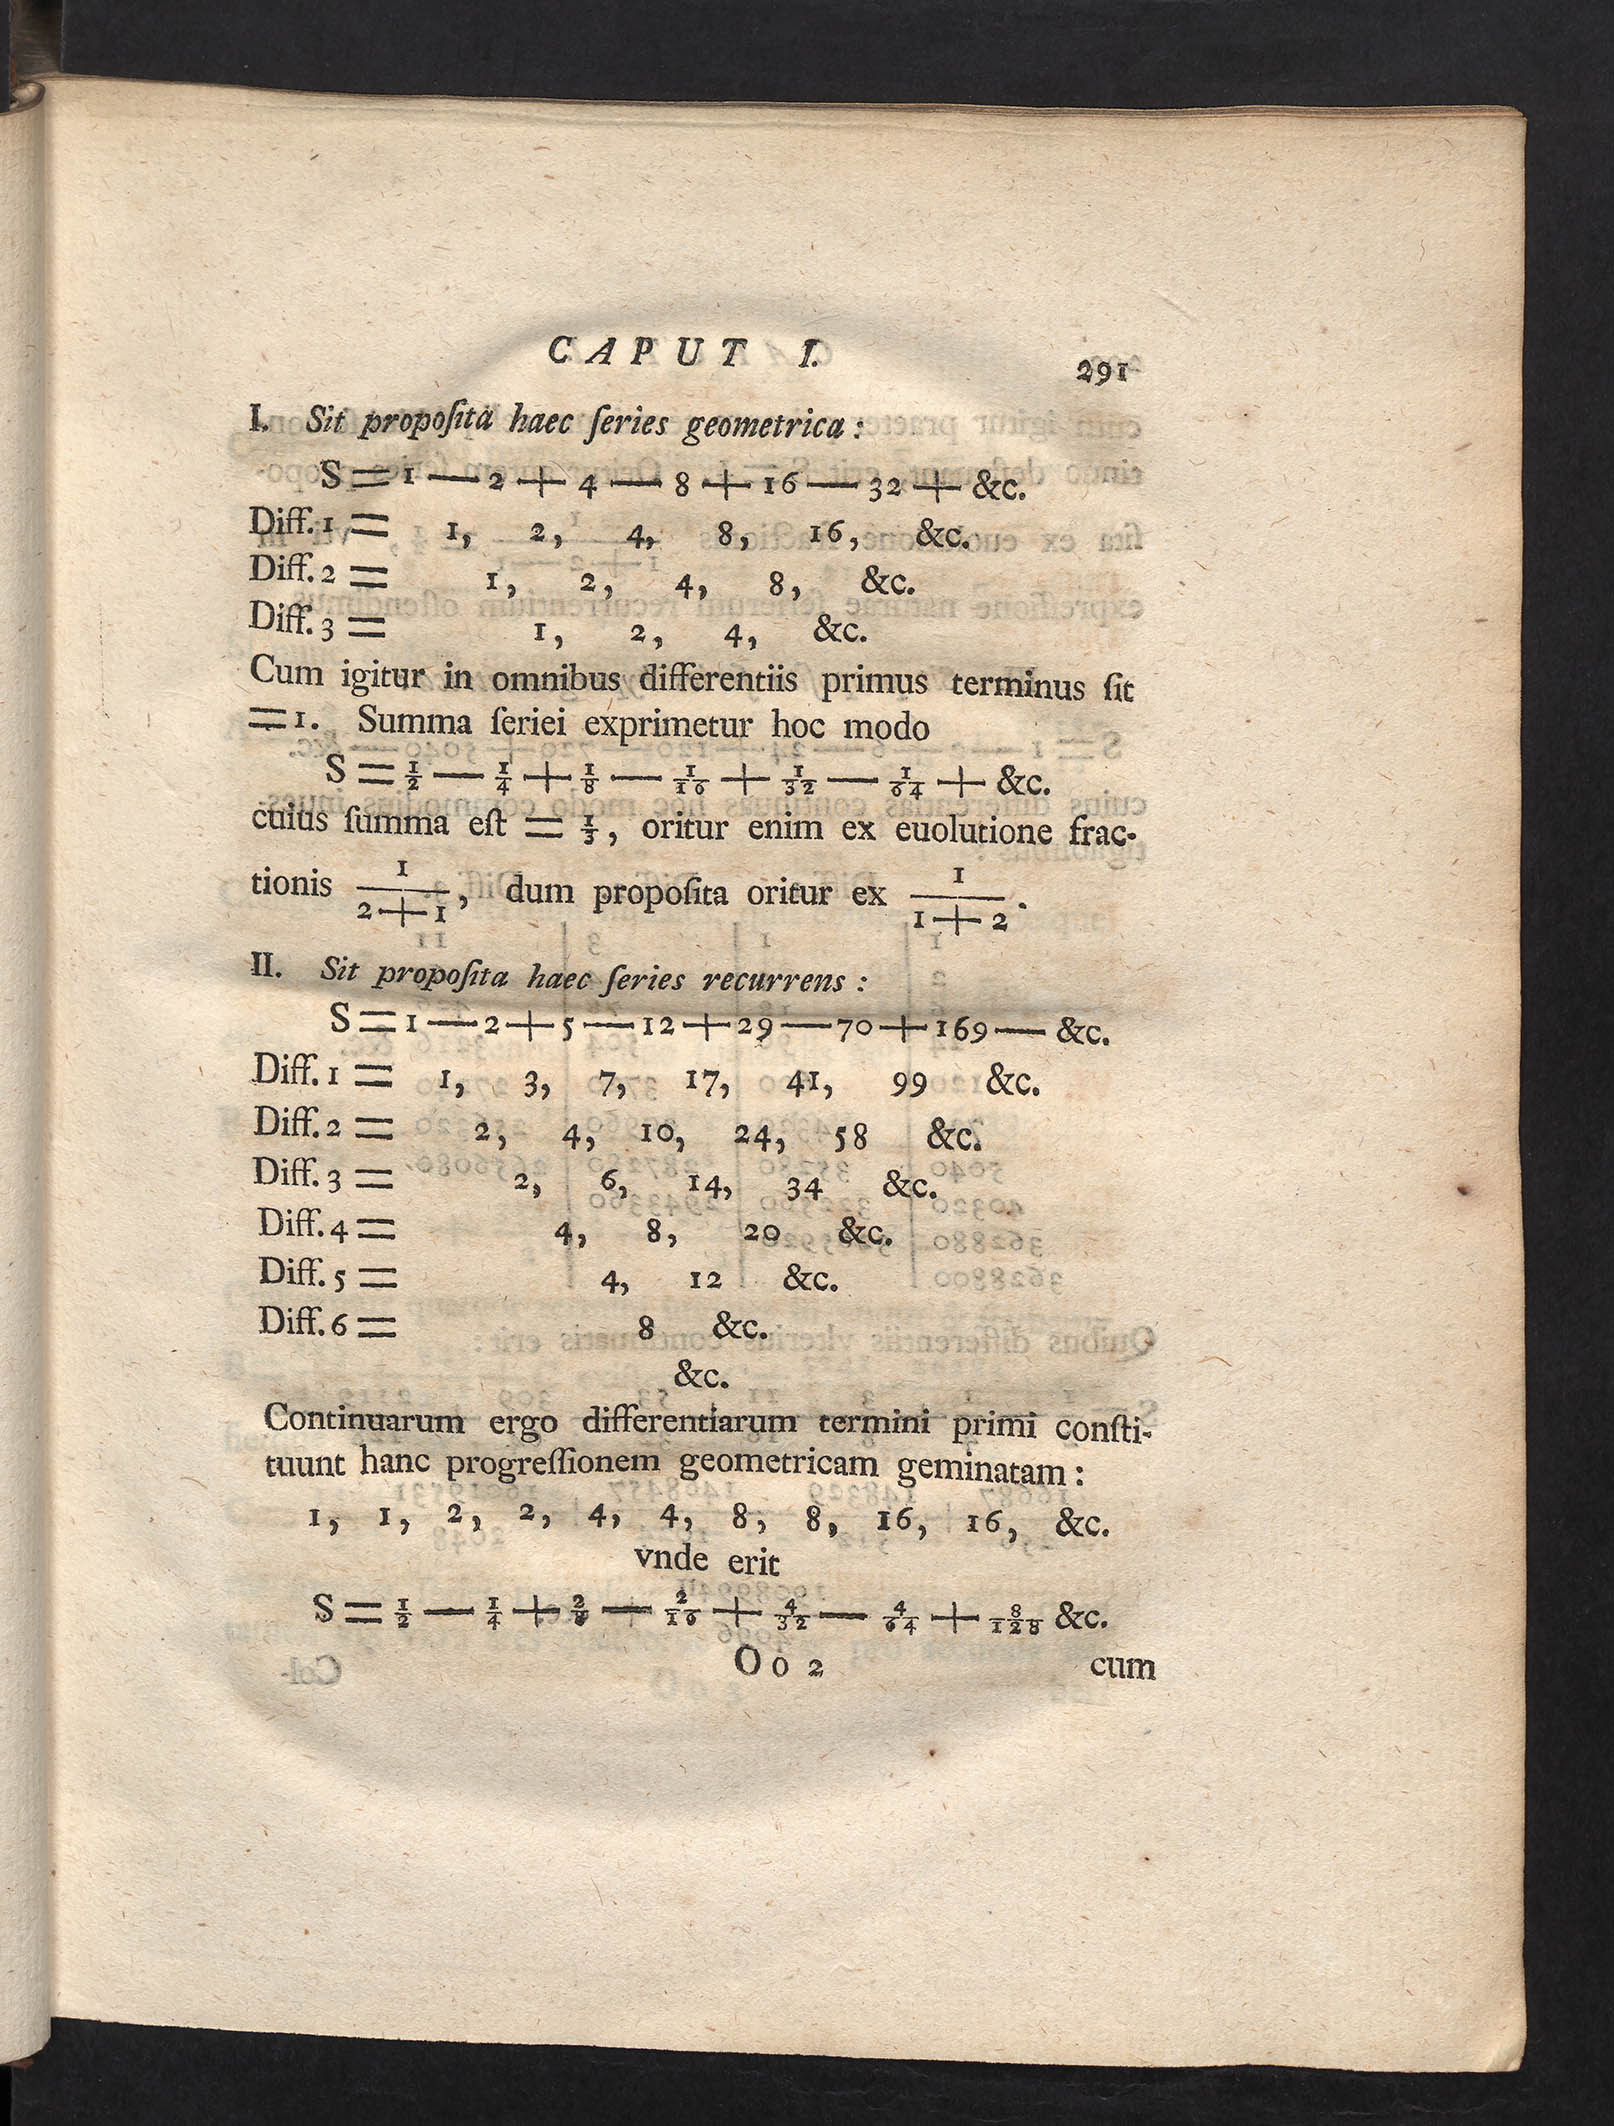 CAPUT I.
291
I. Sit propoſita haec ſeries geometrica :
S = 1 — 2 + 4 — 8 + 16 — 32 + &c.
Diff. 1 = 1, 2, 4, 8, 16, &c.
Diff. 2 = 1, 2, 4, 8, &c.
Diff. 3 = 1, 2, 4, &c.
Cum igitur in omnibus differentiis primus terminus ſit
= 1. Summa ſeriei exprimetur hoc modo
S = 1/2 — 1/4 + 1/8 — 1/16 + 1/32 — 1/64 + &c.
cuius ſumma eſt = 1/3, oritur enim ex euolutione frac-
tionis 1/(2+1), dum propoſita oritur ex 1/(1+2).
II. Sit propoſita haec ſeries recurrens :
S = 1 — 2 + 5 — 12 + 29 — 70 + 169 — &c.
Diff. 1 = 1, 3, 7, 17, 41, 99 &c.
Diff. 2 = 2, 4, 10, 24, 58 &c.
Diff. 3 = 2, 6, 14, 34 &c.
Diff. 4 = 4, 8, 20 &c.
Diff. 5 = 4, 12 &c.
Diff. 6 = 8 &c.
&c.
Continuarum ergo differentiarum termini primi conſti-
tuunt hanc progreſſionem geometricam geminatam :
1, 1, 2, 2, 4, 4, 8, 8, 16, 16, &c.
vnde erit
S = 1/2 — 1/4 + 2/8 — 2/16 + 4/32 — 4/64 + 8/128 &c.
O o 2
cum